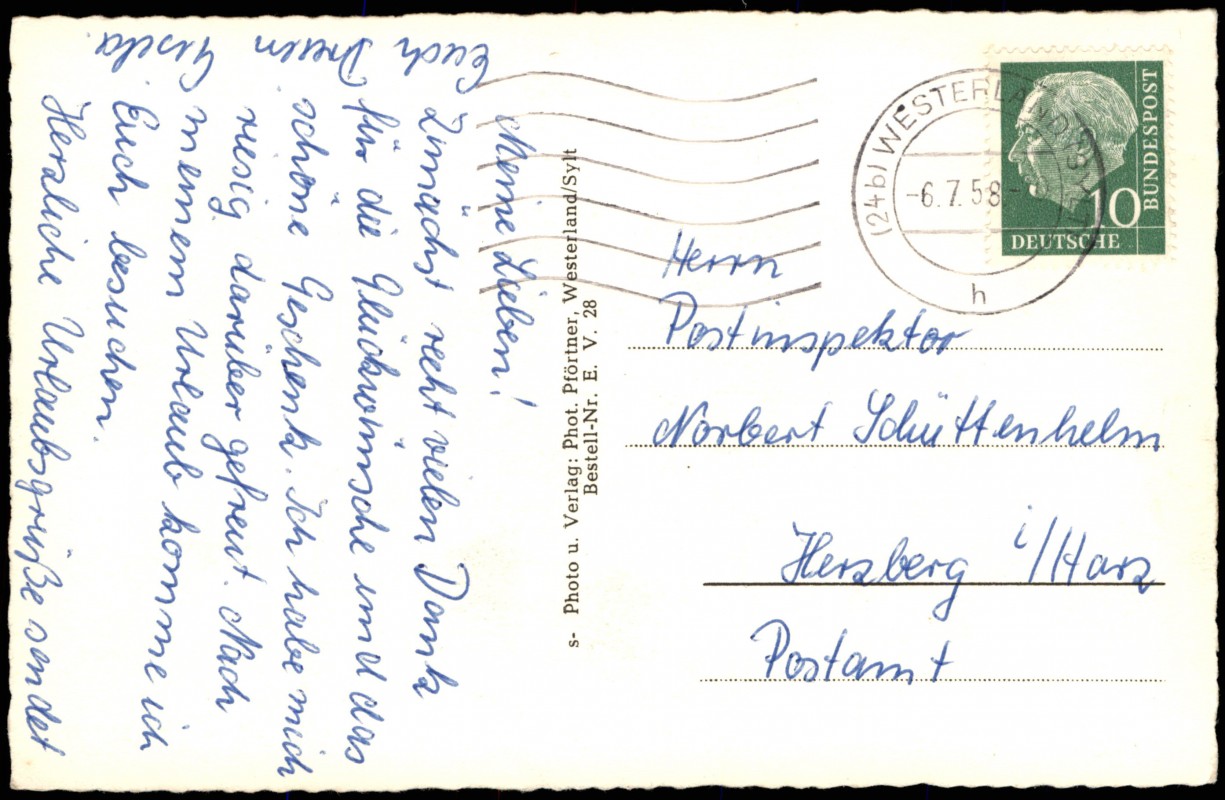 Meine Lieben!
Zunächst recht vielen Dank
für die Glückwünsche und das
schöne Geschenk. Ich habe mich
riesig darüber gefreut. Nach
meinem Urlaub komme ich
Euch besuchen.
Herzliche Urlaubsgrüße sendet
Euch Dreien
Gisela.
s- Photo u. Verlag: Phot. Pförtner, Westerland/Sylt
Bestell-Nr. E. V. 28
(24b) WESTERLAND (SYLT)
-6.7.58.-
h
10
DEUTSCHE
BUNDESPOST
Herrn
Postinspektor
Norbert Schüttenhelm
Herzberg i/Harz
Postamt